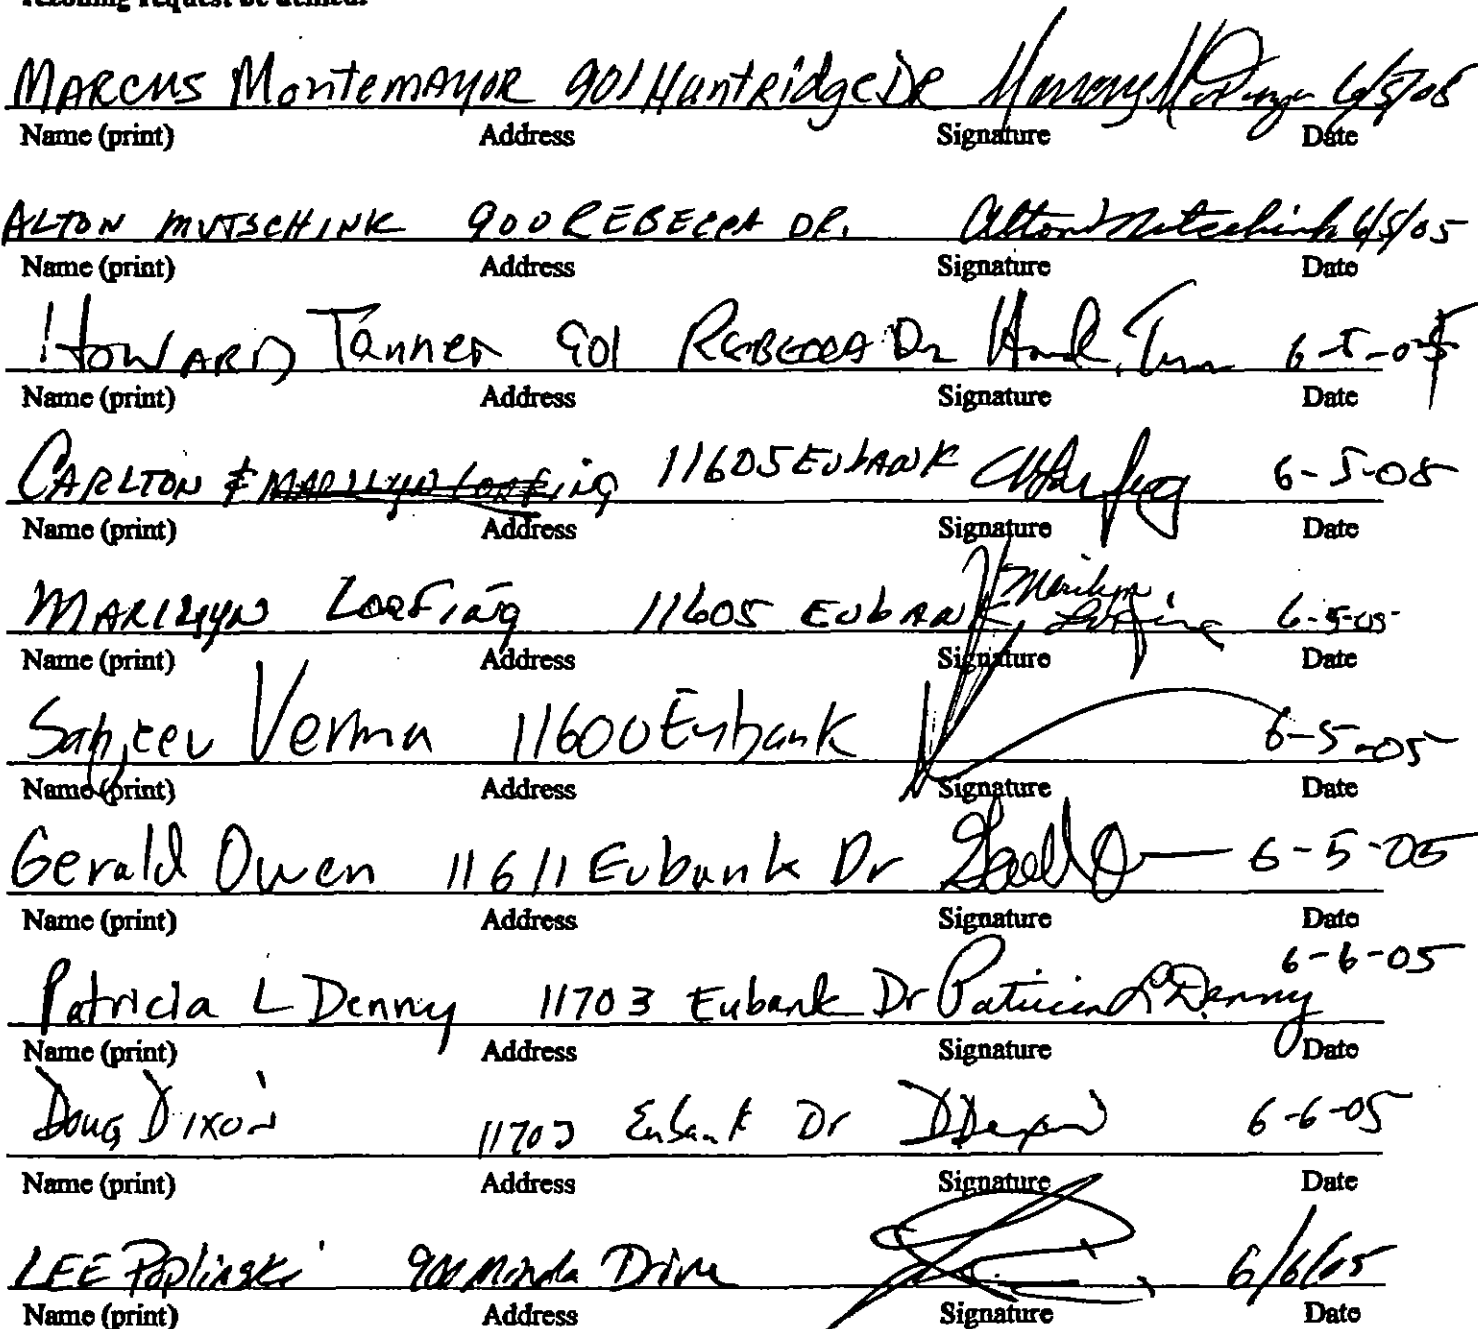 rezoning request be denied.
MARCUS MontemAYOR 901 HuntRidge DR 6/5/05
Name (print) Address Signature Date
ALTON MUTSCHINK 900 REBECCA DR. Alton Mutschink 6/5/05
Name (print) Address Signature Date
HOWARD Tanner 901 REBECCA Dr 6-5-05
Name (print) Address Signature Date
CARLTON & MARILYN LOEFING 11605 EubANK 6-5-05
Name (print) Address Signature Date
MARILYN LoeFing 11605 EubANK Marilyn Loefing 6-5-05
Name (print) Address Signature Date
Sanjeev Verma 11600 Eubank 6-5-05
Name (print) Address Signature Date
Gerald Owen 11611 Eubank Dr 6-5-05
Name (print) Address Signature Date
Patricia L Denny 11703 Eubank Dr Patricia L Denny 6-6-05
Name (print) Address Signature Date
Doug Dixon 11703 Eubank Dr 6-6-05
Name (print) Address Signature Date
LEE Poplinski Drive 6/6/05
Name (print) Address Signature Date